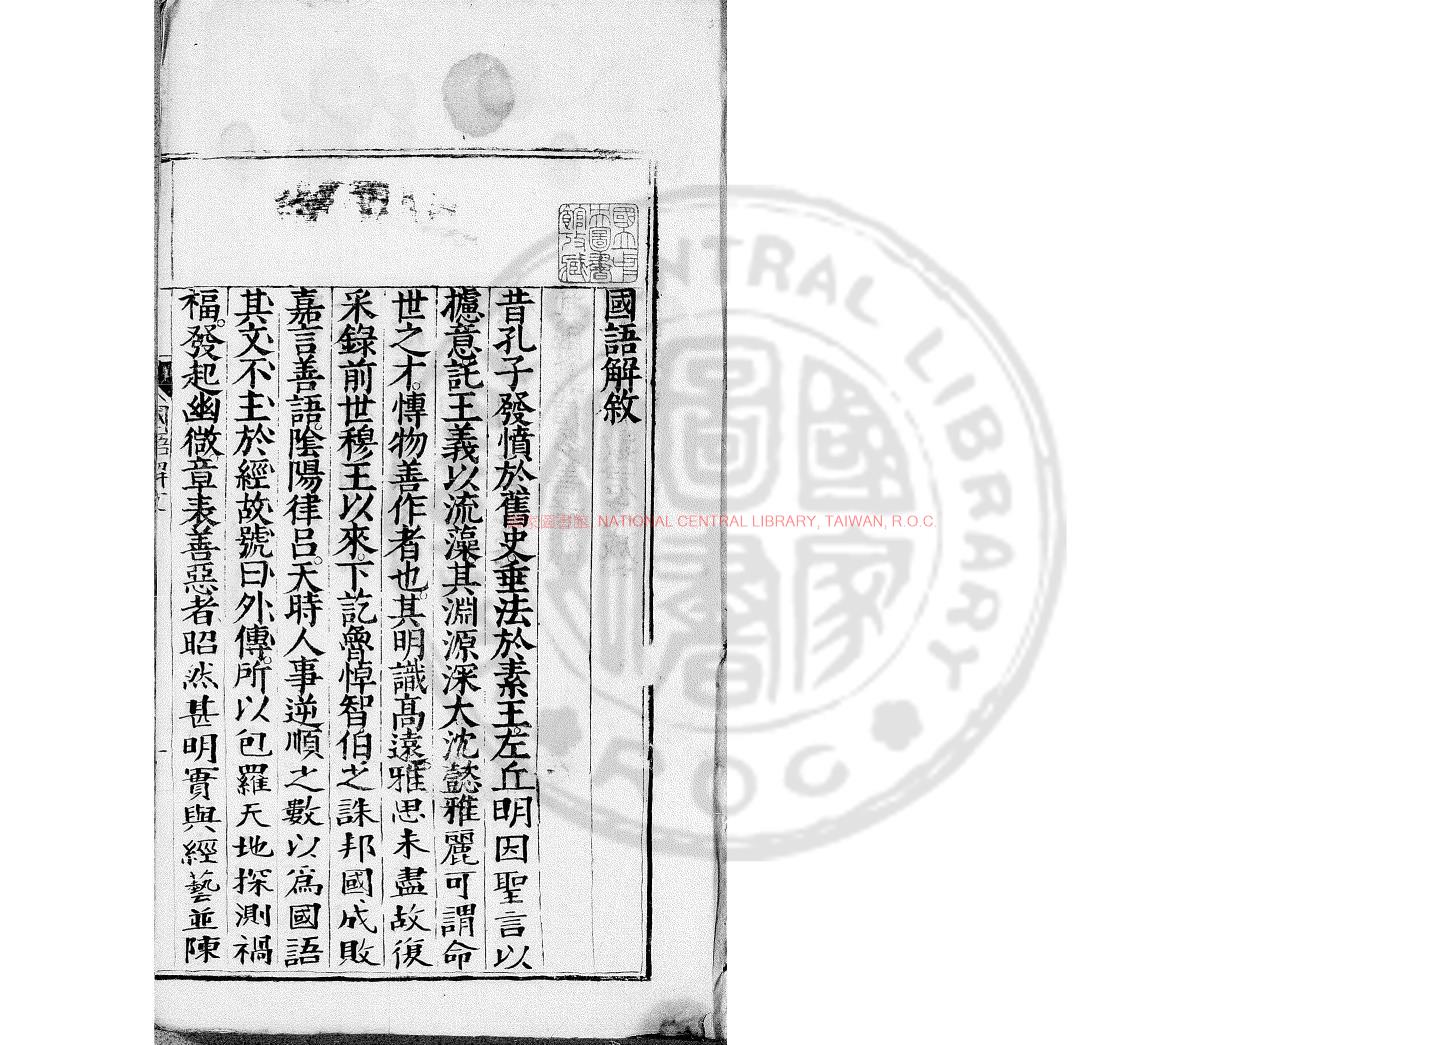 國語解敘
昔孔子發憤於舊史垂法於素王左丘明因聖言以
攄意託王義以流藻其淵源深大沈懿雅麗可謂命
世之才博物善作者也其明識高遠雅思未盡故復
采錄前世穆王以來下訖魯悼智伯之誅邦國成敗
嘉言善語陰陽律呂天時人事逆順之數以爲國語
其文不主於經故號曰外傳所以包羅天地探測禍
福發起幽微章表善惡者昭然甚明實與經藝並陳
國語解
國立中
央圖書
館收藏
國家圖書館, NATIONAL CENTRAL LIBRARY, TAIWAN, R.O.C.
CENTRAL LIBRARY
ROC